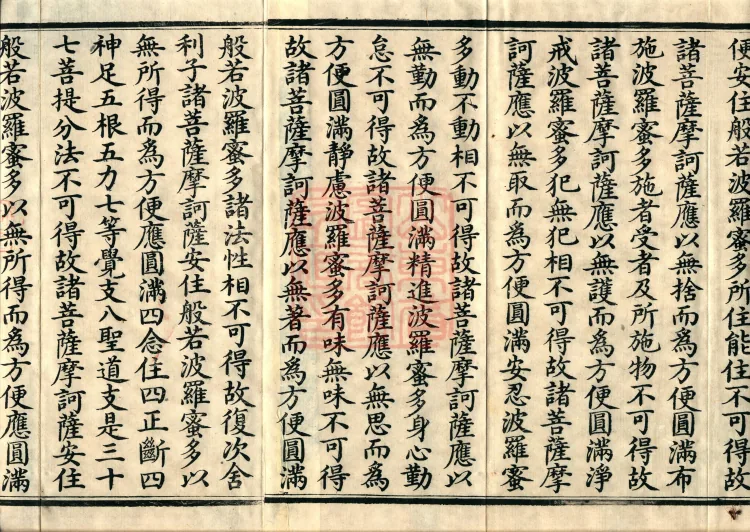 便安住般若波羅蜜多所住能住不可得故
諸菩薩摩訶薩應以無捨而爲方便圓滿布
施波羅蜜多施者受者及所施物不可得故
諸菩薩摩訶薩應以無護而爲方便圓滿淨
戒波羅蜜多犯無犯相不可得故諸菩薩摩
訶薩應以無取而爲方便圓滿安忍波羅蜜
多動不動相不可得故諸菩薩摩訶薩應以
無勤而爲方便圓滿精進波羅蜜多身心勤
怠不可得故諸菩薩摩訶薩應以無思而爲
方便圓滿靜慮波羅蜜多有味無味不可得
故諸菩薩摩訶薩應以無著而爲方便圓滿
般若波羅蜜多諸法性相不可得故復次舍
利子諸菩薩摩訶薩安住般若波羅蜜多以
無所得而爲方便應圓滿四念住四正斷四
神足五根五力七等覺支八聖道支是三十
七菩提分法不可得故諸菩薩摩訶薩安住
般若波羅蜜多以無所得而爲方便應圓滿